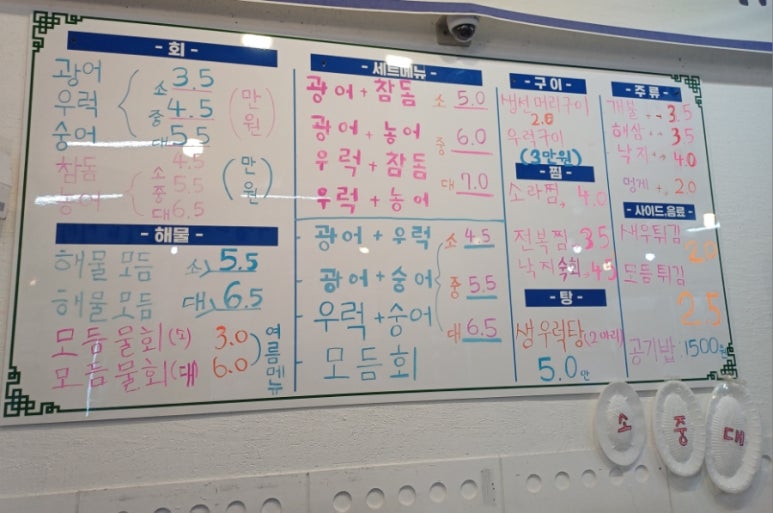 - 회 -
광어 소 3.5
우럭 중 4.5 (만원)
숭어 대 5.5
참돔 소 4.5
중 5.5 (만원)
농어 대 6.5
- 해물 -
해물 모듬 소 5.5
해물 모듬 대 6.5
모듬물회(소) 3.0
모듬물회(대) 6.0
여름메뉴
- 세트메뉴 -
광어 + 참돔 소 5.0
광어 + 농어 중 6.0
우럭 + 참돔
우럭 + 농어 대 7.0
광어 + 우럭 소 4.5
광어 + 숭어 중 5.5
우럭 + 숭어
모듬회 대 6.5
- 구 이 -
생선머리구이
2.0
우럭구이
(3만원)
- 찜 -
소라찜 4.0
전복찜 3.5
낙지숙회 4.5
- 탕 -
생우럭탕(2마리)
5.0만
- 주 류 -
개불 3.5
해삼 3.5
낙지 4.0
멍게 2.0
- 사이드,음료 -
새우튀김
2.0
모듬튀김
2.5
공기밥 1500원
소 중 대